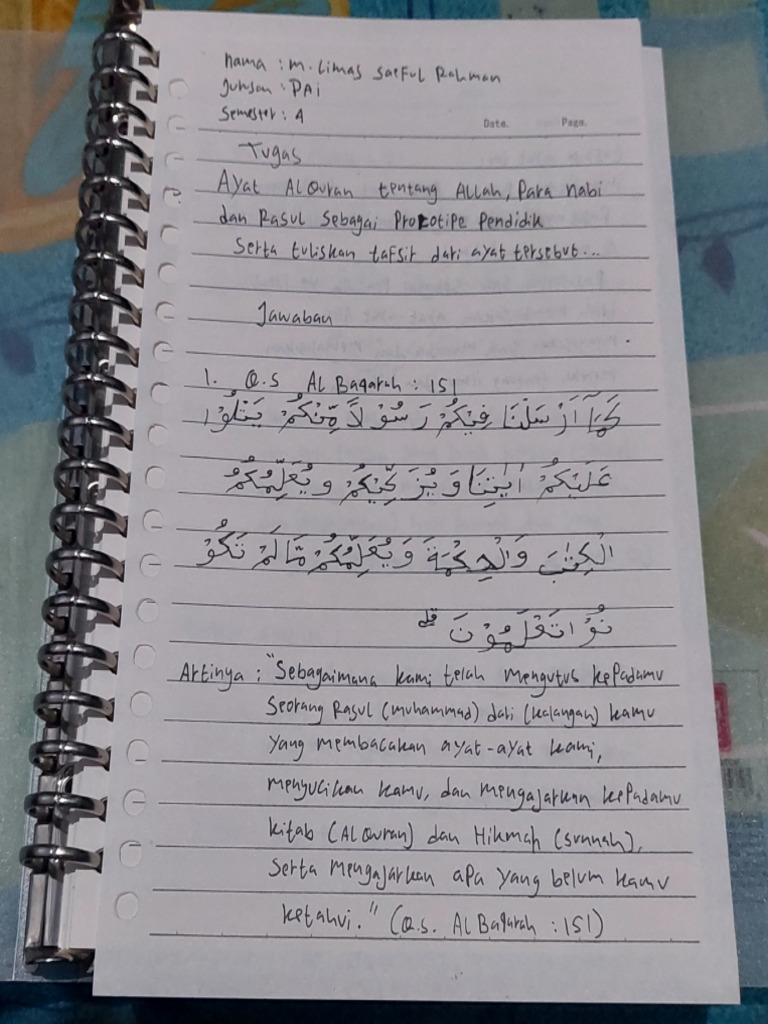 nama : M. Limas Saeful Rahman
Jurusan : PAI
Semester : 4
Date. Page.
Tugas
Ayat Al Quran tentang Allah, Para nabi
dan Rasul sebagai Prototipe Pendidik
Serta tuliskan tafsir dari ayat tersebut...
Jawaban
1. Q.S Al Baqarah : 151
كَمَآ اَرْسَلْنَا فِيْكُمْ رَسُوْلًا مِّنْكُمْ يَتْلُوْا
عَلَيْكُمْ اٰيٰتِنَا وَيُزَكِّيْكُمْ وَيُعَلِّمُكُمُ
الْكِتٰبَ وَالْحِكْمَةَ وَيُعَلِّمُكُمْ مَّا لَمْ تَكُوْ
نُوْا تَعْلَمُوْنَ ۗ
Artinya : "Sebagaimana kami telah mengutus kepadamu
Seorang Rasul (Muhammad) dari (kalangan) kamu
yang membacakan ayat-ayat kami,
menyucikan kamu, dan mengajarkan kepadamu
kitab (Al Quran) dan Hikmah (sunnah),
Serta mengajarkan apa yang belum kamu
ketahui." (Q.S. Al Baqarah : 151)